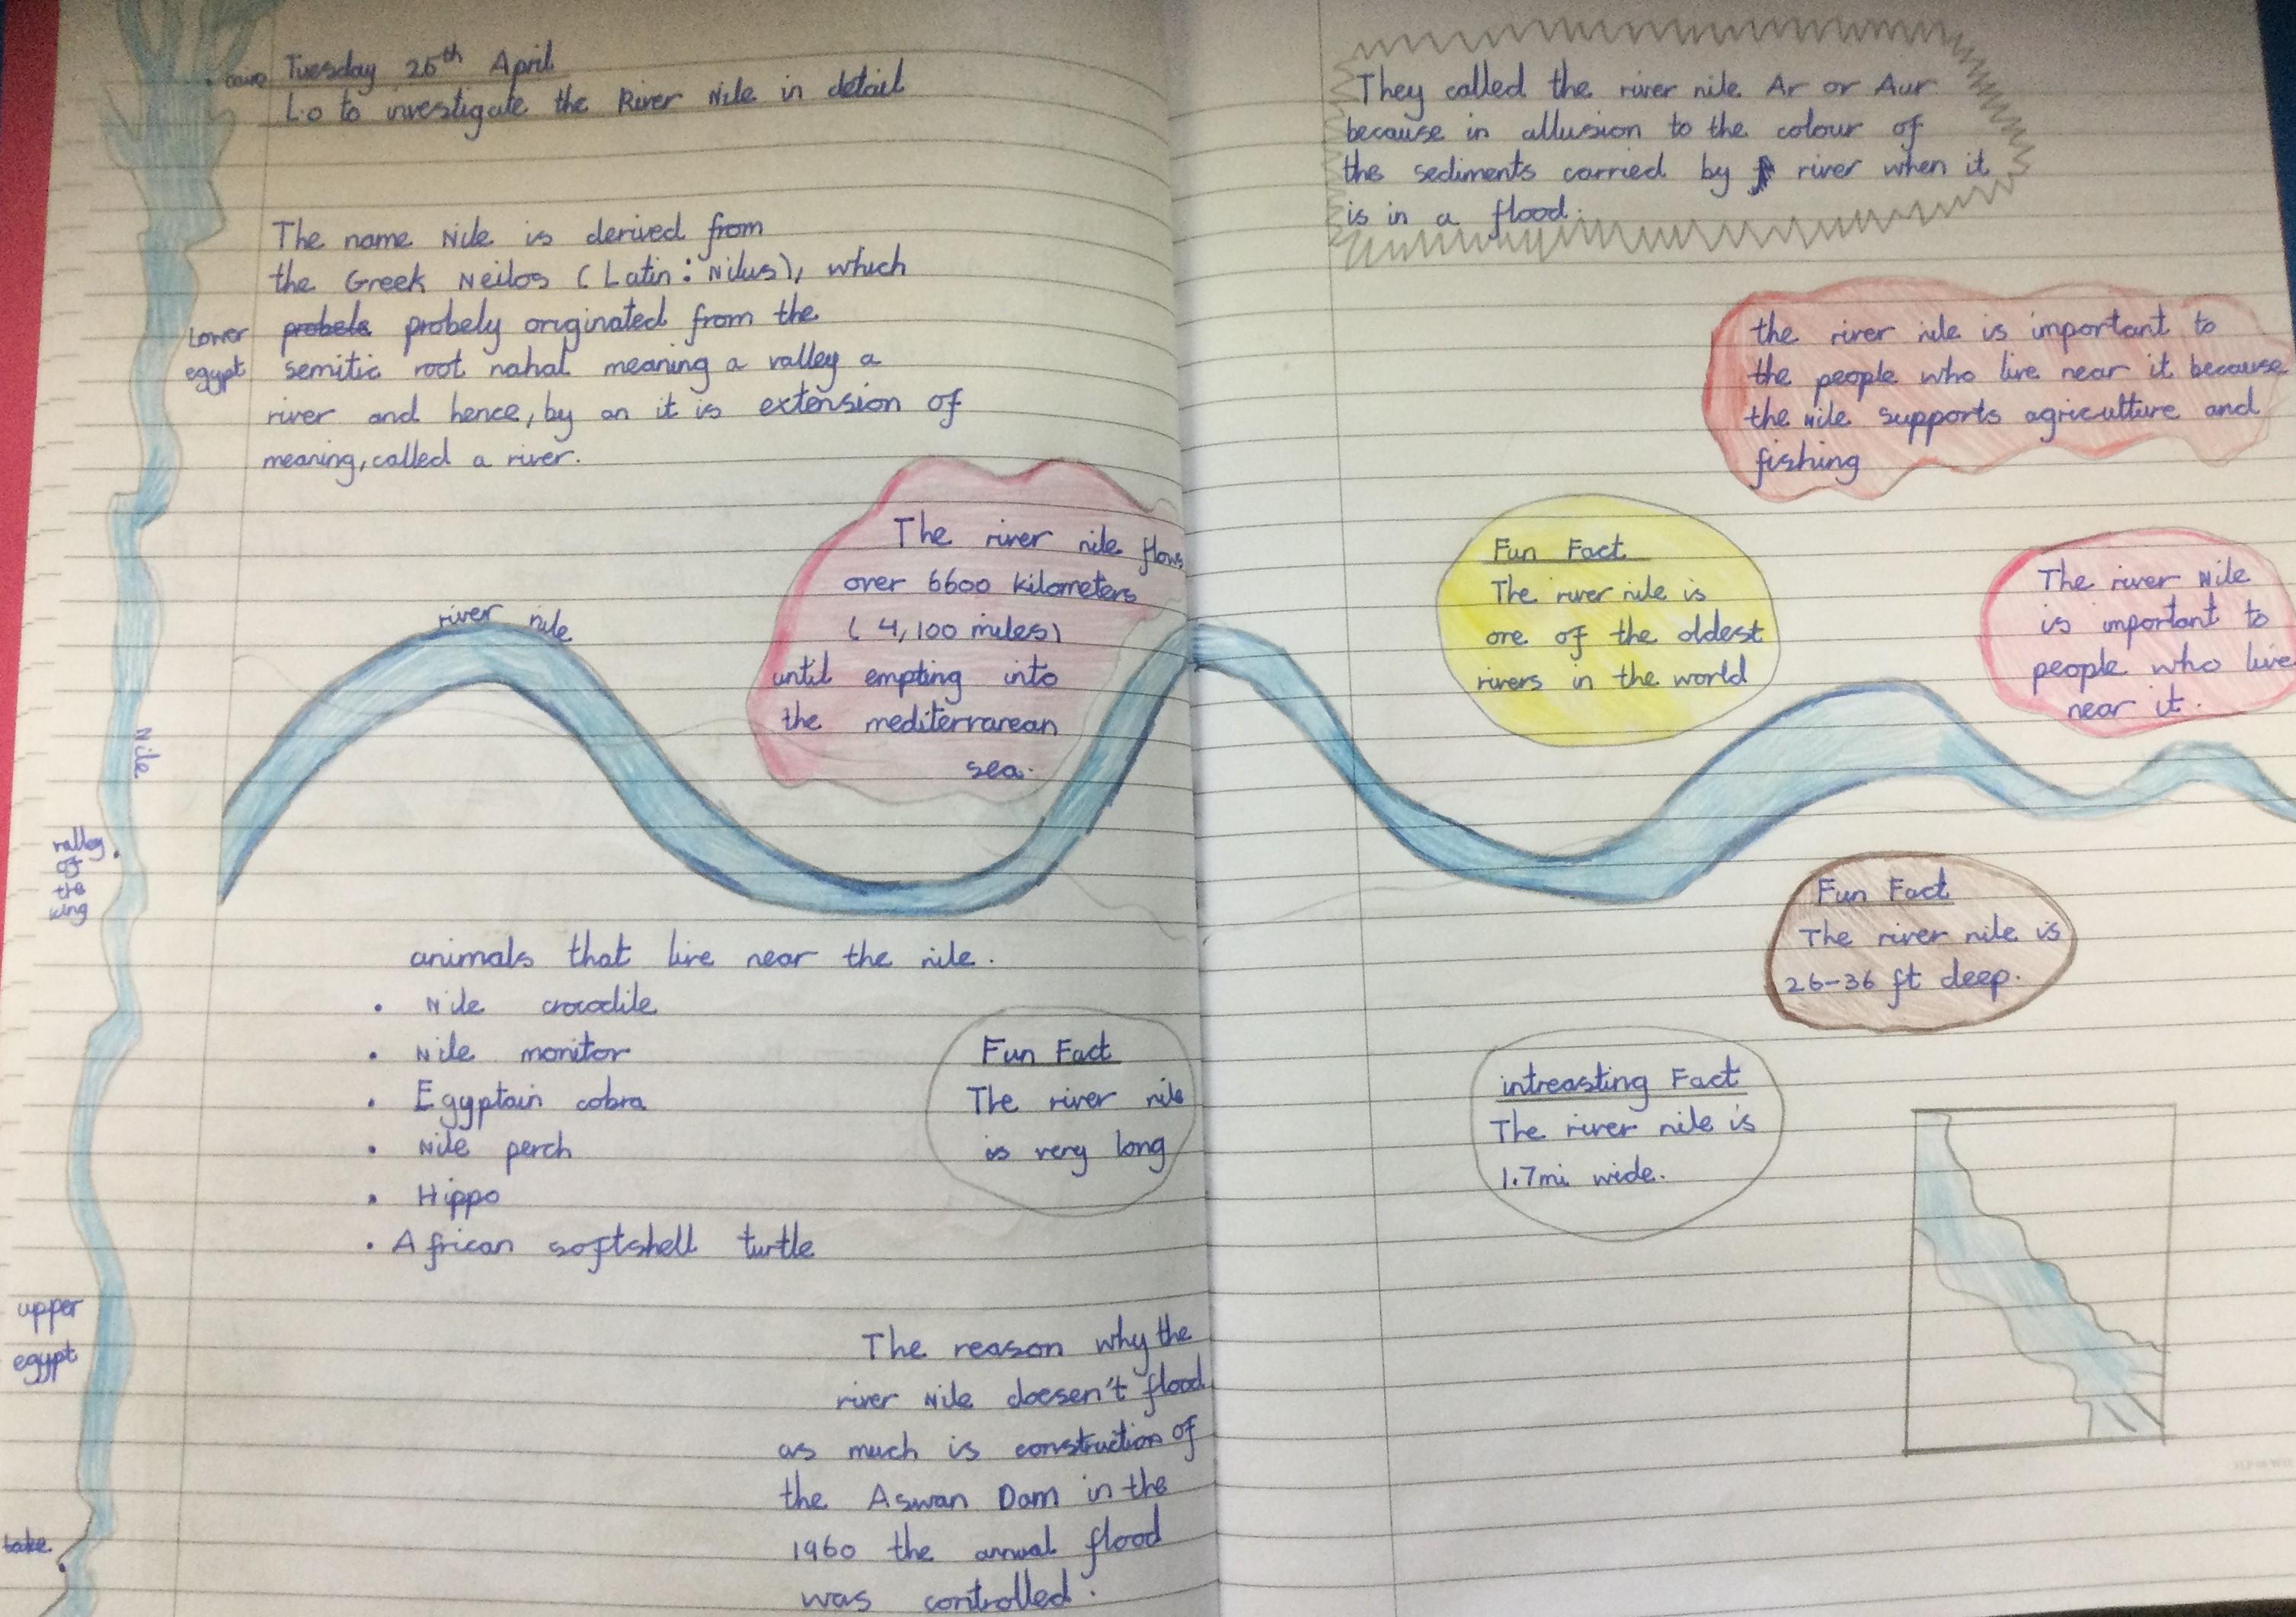 Tuesday 25th April
L.o to investigate the River Nile in detail
The name Nile is derived from
the Greek Neilos (Latin: Nilus), which
probely originated from the
semitic root nahal meaning a valley a
river and hence, by an it is extension of
meaning, called a river.
Lower
egypt
Nile
valley
of
the
king
upper
egypt
river nile
The river nile flows
over 6600 kilometers
(4,100 miles)
until empting into
the mediterranean
sea.
animals that live near the nile.
• Nile crocodile
• Nile monitor
• Egyptain cobra
• Nile perch
• Hippo
• African softshell turtle
Fun Fact
The river nile
is very long
The reason why the
river Nile doesen't flood
as much is construction of
the Aswan Dam in the
1960 the annual flood
was controlled.
They called the river nile Ar or Aur
because in allusion to the colour of
the sediments carried by river when it
is in a flood.
the river nile is important to
the people who live near it because
the Nile supports agriculture and
fishing
Fun Fact
The river nile is
one of the oldest
rivers in the world
The river Nile
is important to
people who live
near it.
Fun Fact
The river nile is
26-36 ft deep.
intreasting Fact
The river nile is
1.7mi wide.